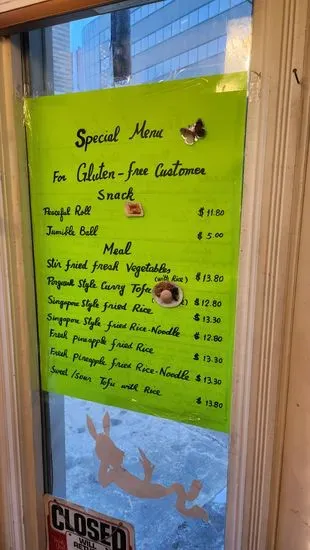 Special Menu
For Gluten-free Customer
Snack
Peaceful Roll $11.80
Jumible Ball $5.00
Meal
Stir fried fresh Vegetables (with Rice) $13.80
Style Curry Tofu $12.80
Singapore Style fried Rice $13.30
Singapore Style fried Rice-Noodle $12.80
Fresh pineapple fried Rice $13.30
Fresh Pineapple fried Rice-Noodle $13.30
Sweet/Sour Tofu with Rice $13.80
CLOSED
WILL